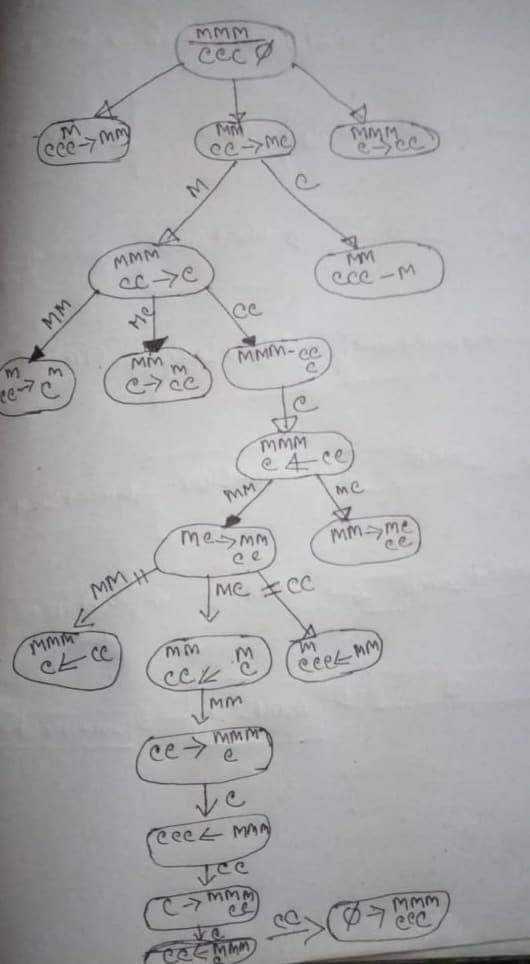 MMM
CCC Ø
M
CCC → MM
MM
CC → MC
MMM
C → CC
M
C
MMM
CC → C
MM
CCC - M
MM
MC
CC
M M
CC → C
MM M
C → CC
MMM - CC
C
C
MMM
C ← CC
MM
MC
MC → MM
CC
MM → MC
CC
MM
MC
CC
MMM
C ← CC
MM M
CC ← C
M
CCC ← MM
MM
CC → MMM
C
C
CCC ← MMM
CC
C → MMM
CC
C
CC ← MMM
C
CC
Ø → MMM
CCC